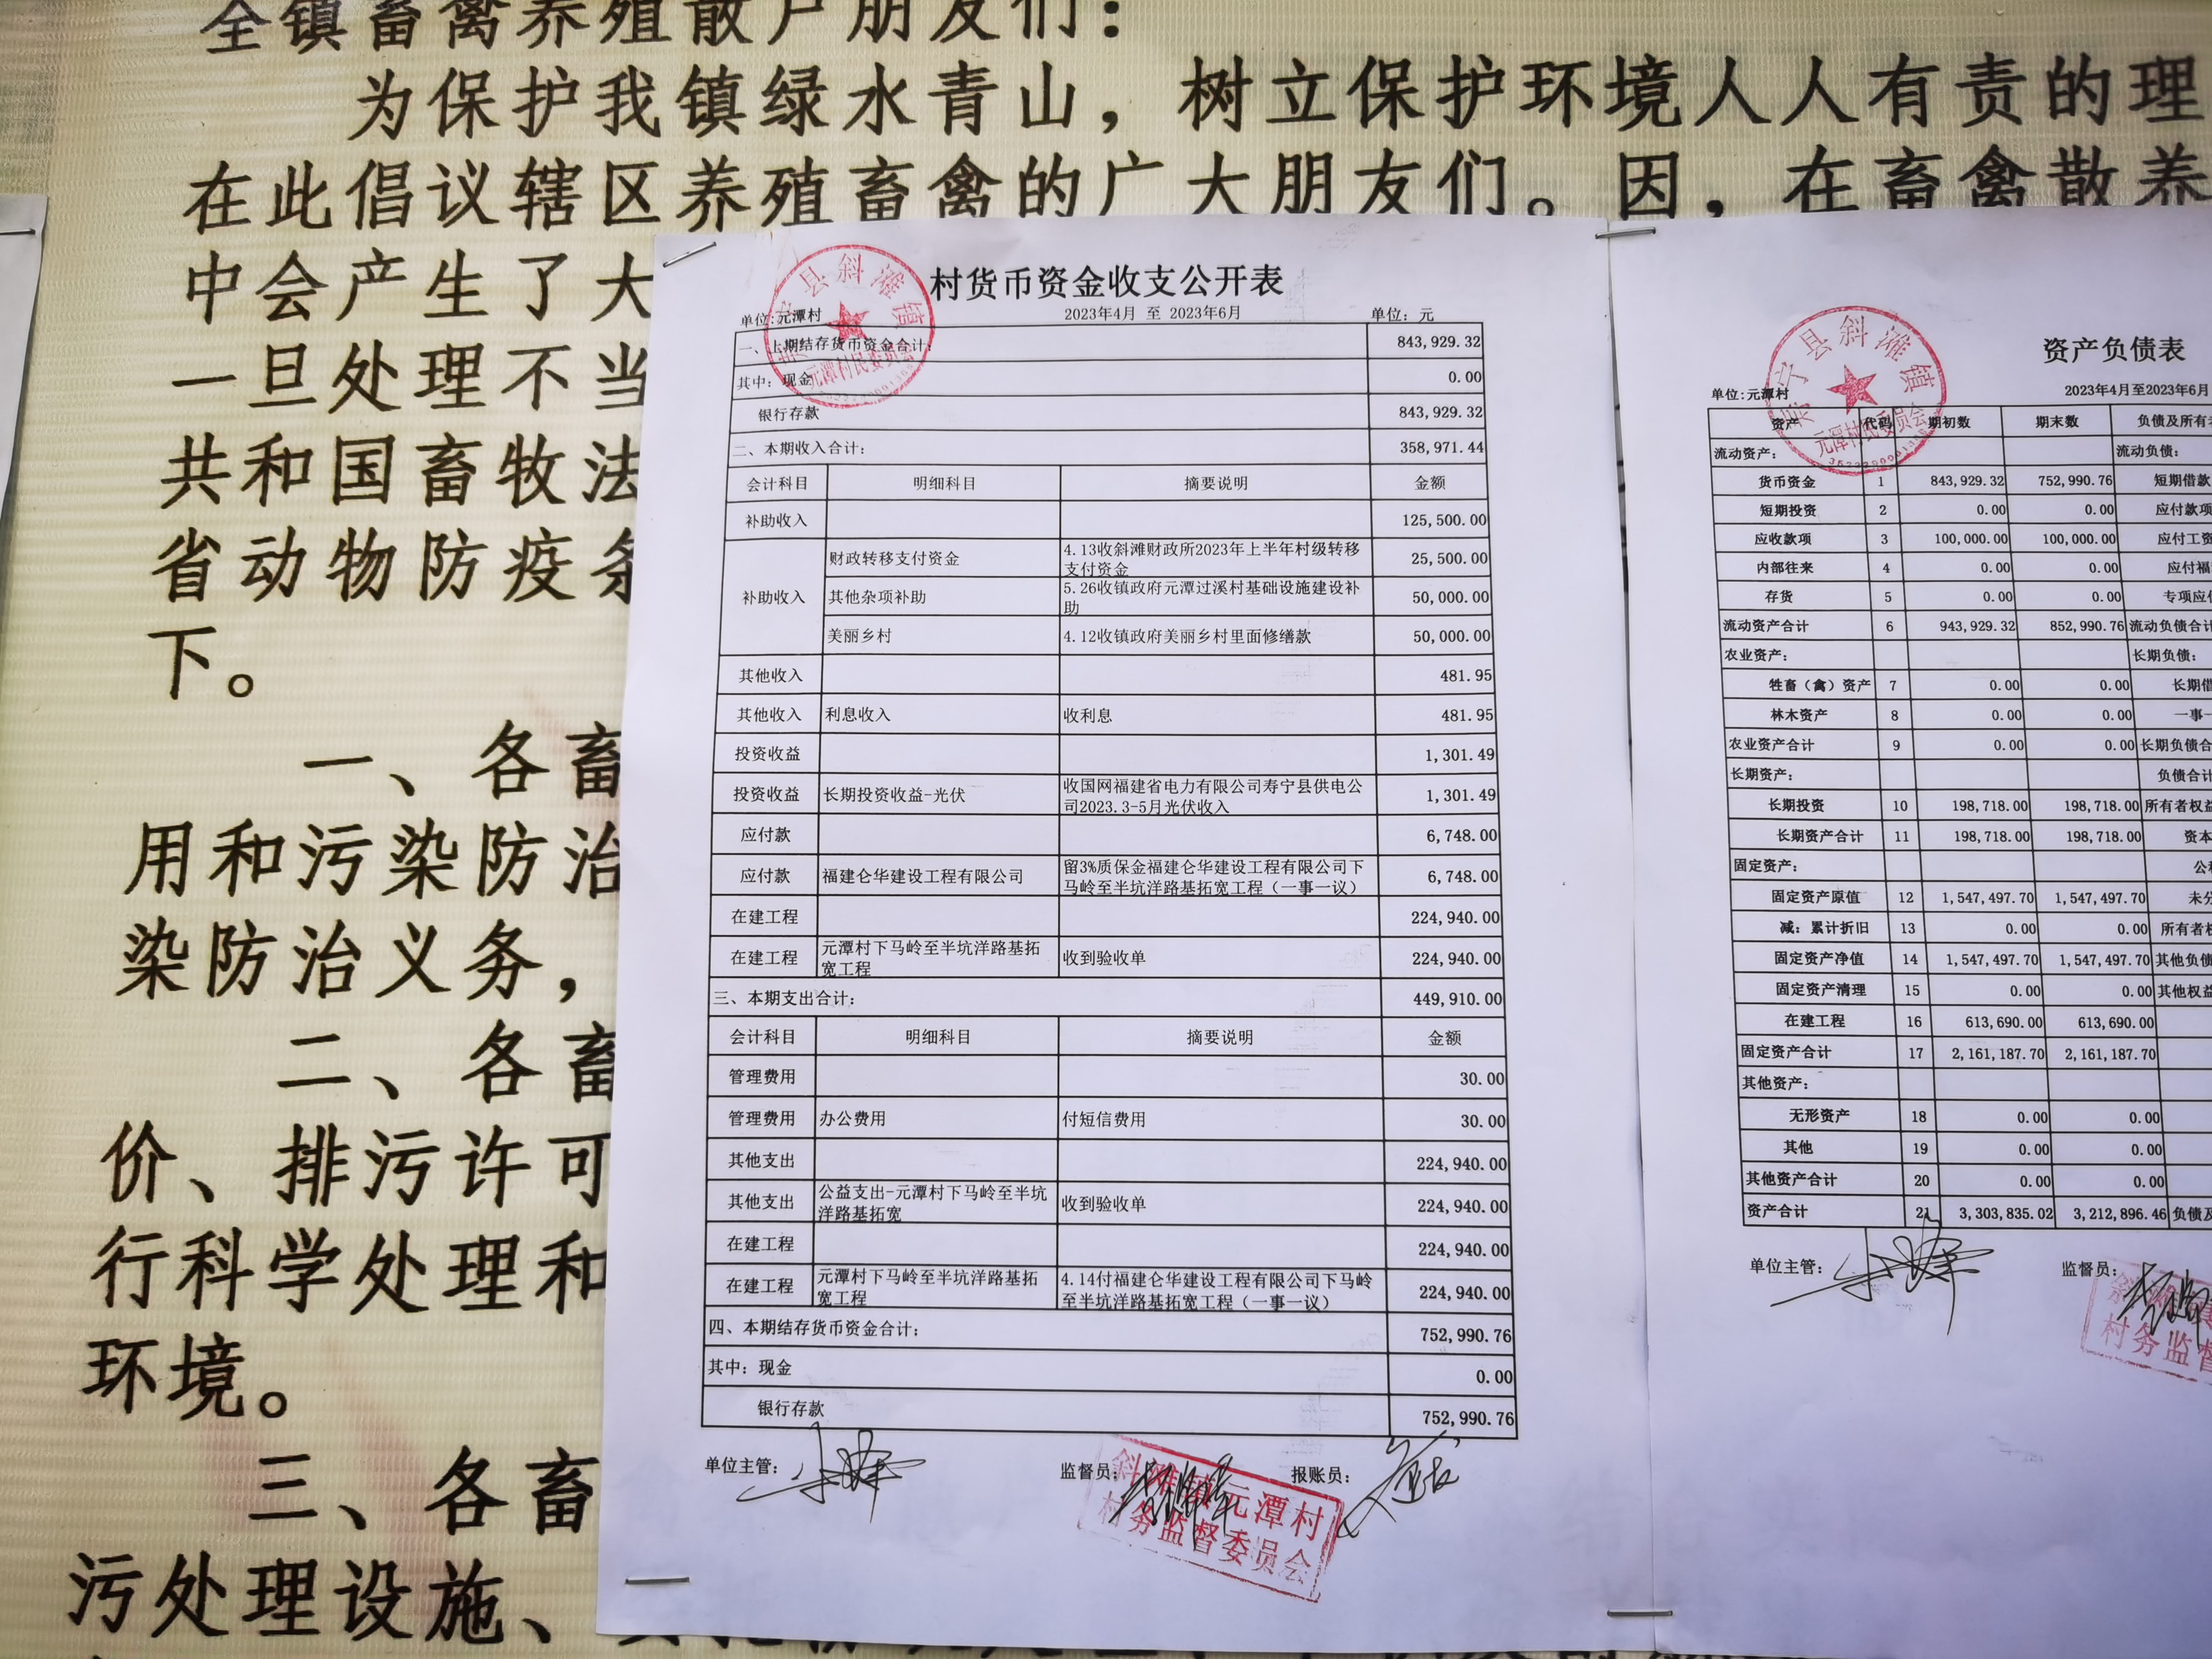 全镇畜禽养殖散户朋友们：
为保护我镇绿水青山，树立保护环境人人有责的理
在此倡议辖区养殖畜禽的广大朋友们。因，在畜禽散养
中会产生了大
一旦处理不当
共和国畜牧法
省动物防疫条
下。
一、各畜
用和污染防治
染防治义务，
二、各畜
价、排污许可
行科学处理和
环境。
三、各畜
污处理设施、
村货币资金收支公开表
单位:元潭村 2023年4月 至 2023年6月 单位：元
一、上期结存货币资金合计： 843,929.32
其中：现金 0.00
银行存款 843,929.32
二、本期收入合计： 358,971.44
会计科目 明细科目 摘要说明 金额
补助收入 125,500.00
补助收入 财政转移支付资金 4.13收斜滩财政所2023年上半年村级转移
支付资金 25,500.00
其他杂项补助 5.26收镇政府元潭过溪村基础设施建设补
助 50,000.00
美丽乡村 4.12收镇政府美丽乡村里面修缮款 50,000.00
其他收入 481.95
其他收入 利息收入 收利息 481.95
投资收益 1,301.49
投资收益 长期投资收益-光伏 收国网福建省电力有限公司寿宁县供电公
司2023.3-5月光伏收入 1,301.49
应付款 6,748.00
应付款 福建仑华建设工程有限公司 留3%质保金福建仑华建设工程有限公司下
马岭至半坑洋路基拓宽工程（一事一议） 6,748.00
在建工程 224,940.00
在建工程 元潭村下马岭至半坑洋路基拓
宽工程 收到验收单 224,940.00
三、本期支出合计： 449,910.00
会计科目 明细科目 摘要说明 金额
管理费用 30.00
管理费用 办公费用 付短信费用 30.00
其他支出 224,940.00
其他支出 公益支出-元潭村下马岭至半坑
洋路基拓宽 收到验收单 224,940.00
在建工程 224,940.00
在建工程 元潭村下马岭至半坑洋路基拓
宽工程 4.14付福建仑华建设工程有限公司下马岭
至半坑洋路基拓宽工程（一事一议） 224,940.00
四、本期结存货币资金合计： 752,990.76
其中：现金 0.00
银行存款 752,990.76
单位主管： 监督员： 报账员：
斜滩镇元潭村
村务监督委员会
县斜滩镇
元潭村民委员会
资产负债表
单位:元潭村 2023年4月至2023年6月
资产 代码 期初数 期末数 负债及所有者
流动资产： 流动负债：
货币资金 1 843,929.32 752,990.76 短期借款
短期投资 2 0.00 0.00 应付款项
应收款项 3 100,000.00 100,000.00 应付工资
内部往来 4 0.00 0.00 应付福
存货 5 0.00 0.00 专项应付
流动资产合计 6 943,929.32 852,990.76 流动负债合计
农业资产： 长期负债：
牲畜（禽）资产 7 0.00 0.00 长期借
林木资产 8 0.00 0.00 一事一
农业资产合计 9 0.00 0.00 长期负债合
长期资产： 负债合计
长期投资 10 198,718.00 198,718.00 所有者权益
长期资产合计 11 198,718.00 198,718.00 资本
固定资产： 公
固定资产原值 12 1,547,497.70 1,547,497.70 未分
减：累计折旧 13 0.00 0.00 所有者权
固定资产净值 14 1,547,497.70 1,547,497.70 其他负债
固定资产清理 15 0.00 0.00 其他权益
在建工程 16 613,690.00 613,690.00
固定资产合计 17 2,161,187.70 2,161,187.70
其他资产：
无形资产 18 0.00 0.00
其他 19 0.00 0.00
其他资产合计 20 0.00 0.00
资产合计 21 3,303,835.02 3,212,896.46 负债及
单位主管： 监督员：
村务监督
寿宁县斜滩镇
元潭村民委员会